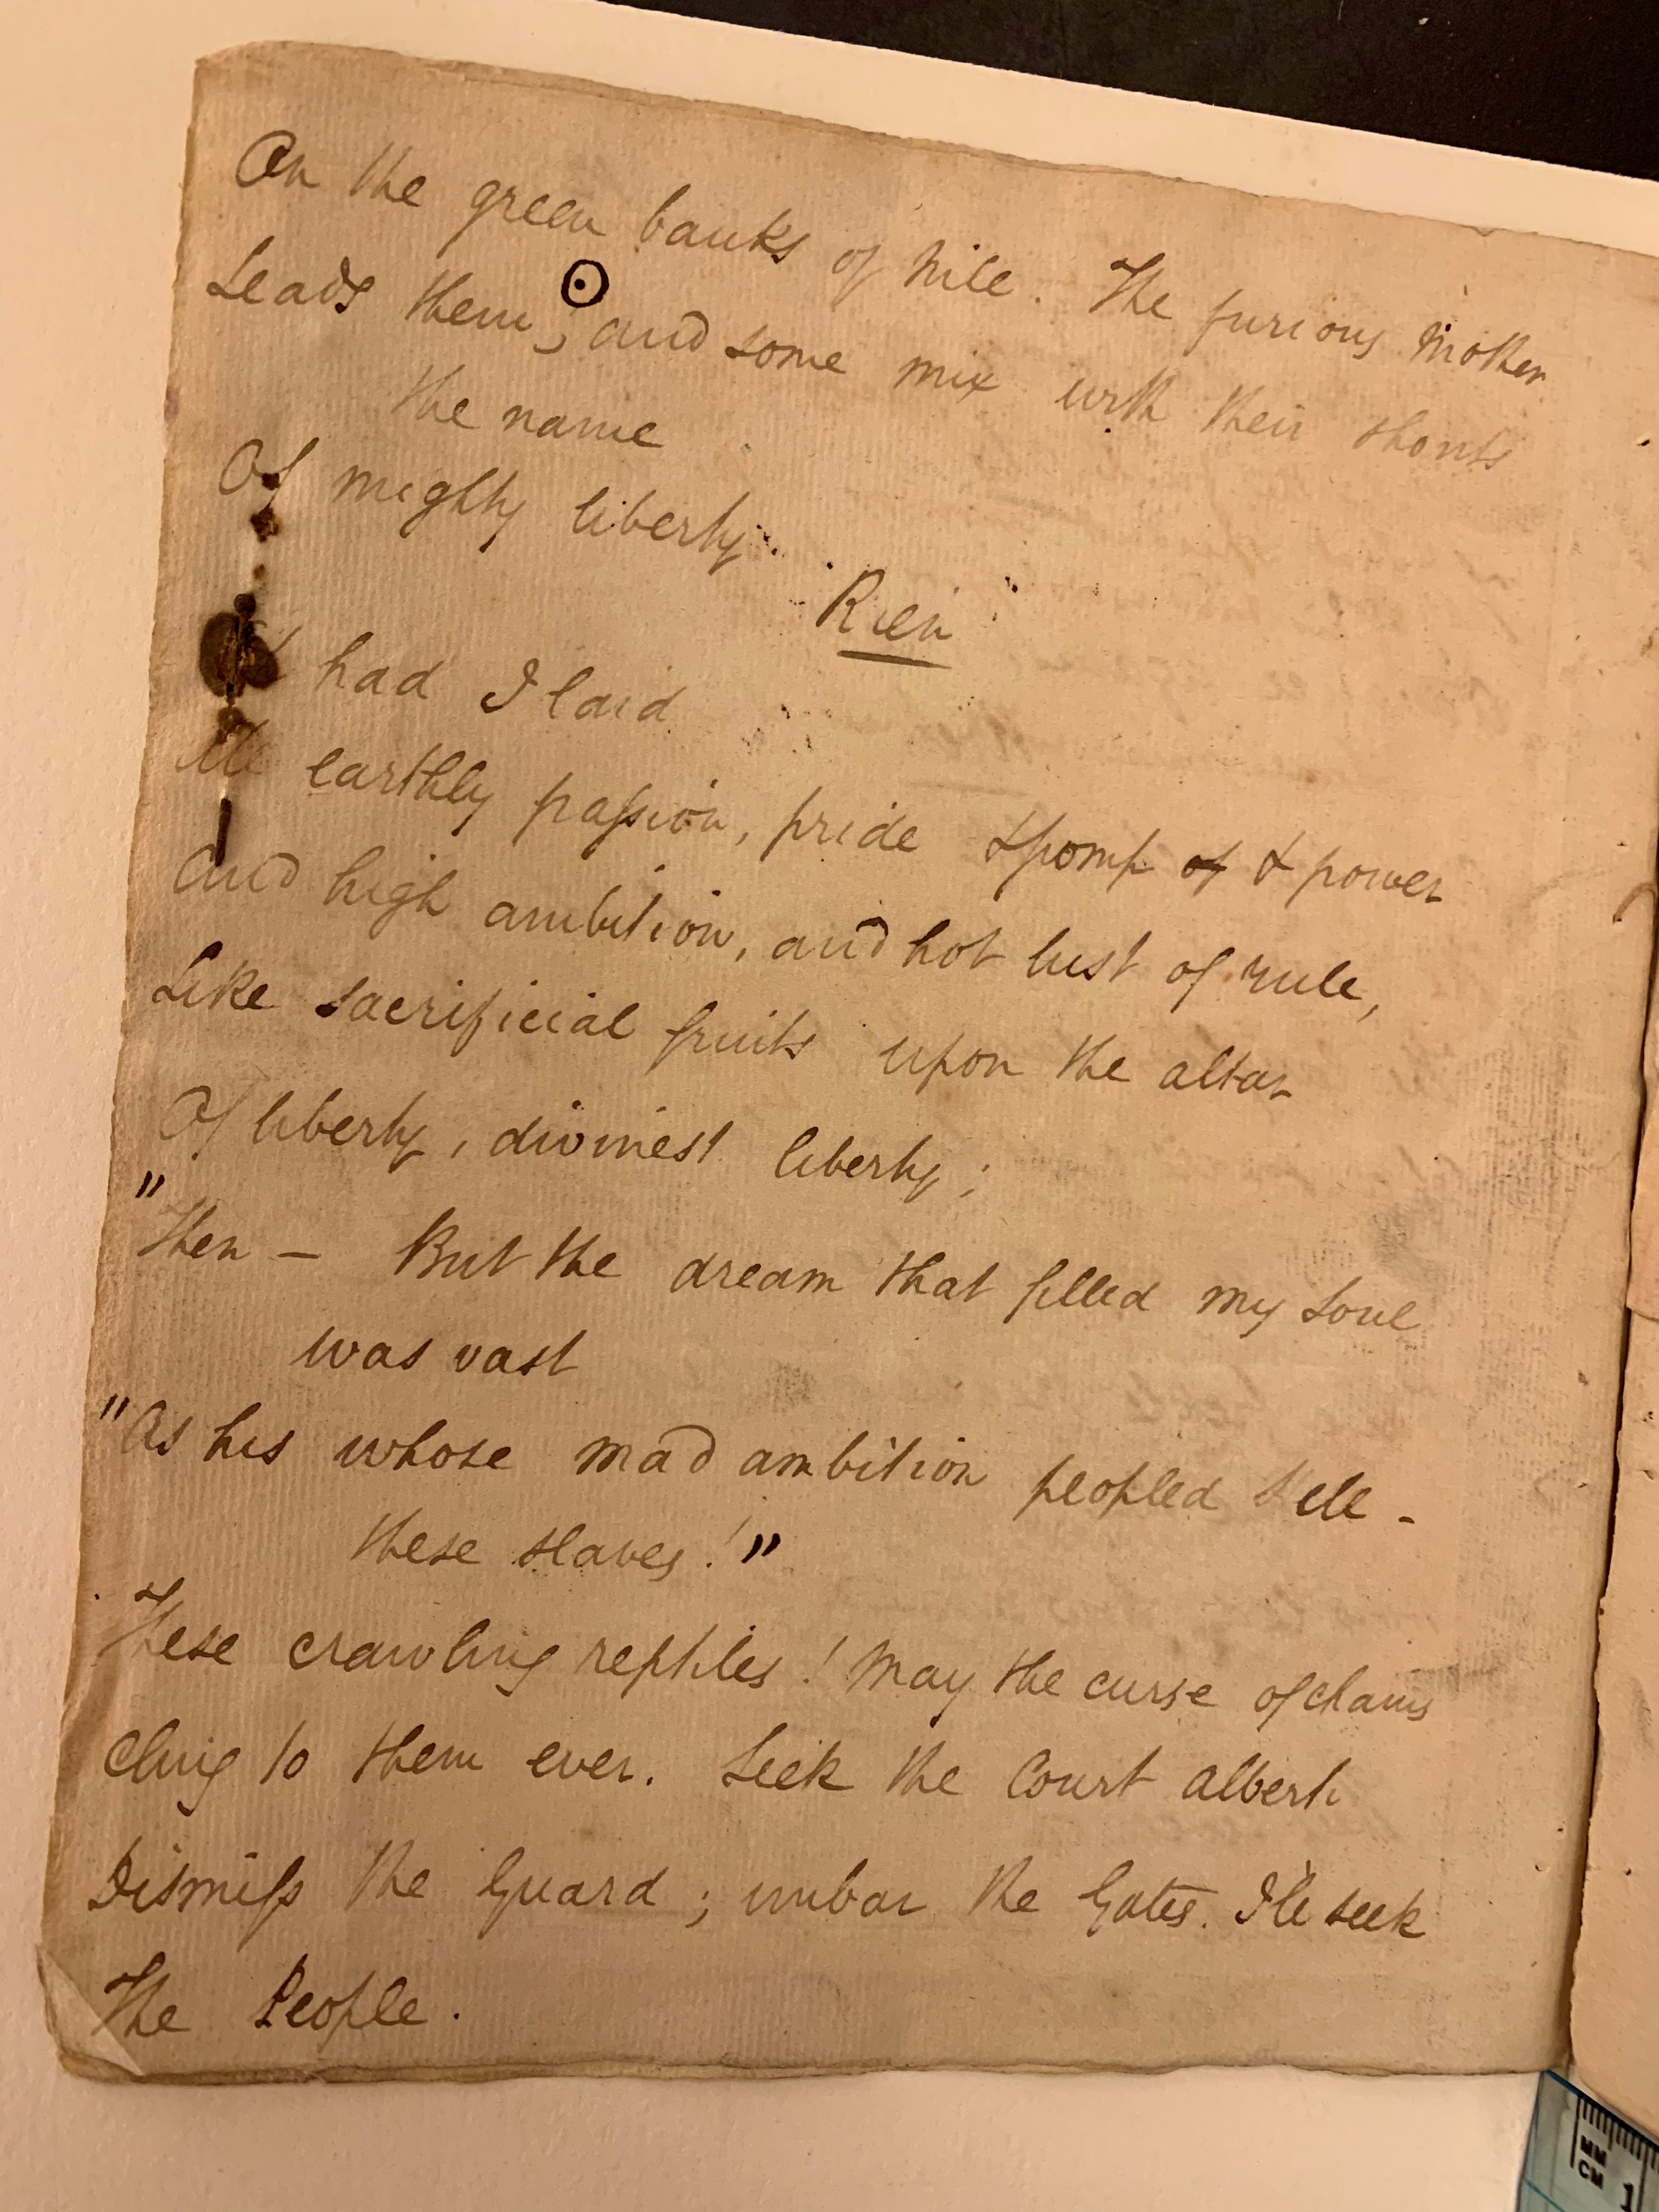 On the green banks of Nile. The furious Mother
Leads them; and some mix with their shouts
the name
Of mighty liberty.
Rien
had I laid
All earthly passion, pride & pomp of & power
And high ambition, and hot lust of rule,
Like sacrificial fruits upon the altar
Of liberty, divinest liberty;
"Then — But the dream that filled my soul
was vast
"As his whose mad ambition peopled Hell -
these slaves!"
These crawling reptiles! May the curse of chains
Cling to them ever. Seek the Court Alberti
Dismiss the Guard; unbar the Gates. I'le seek
The People.
MM
CM 1